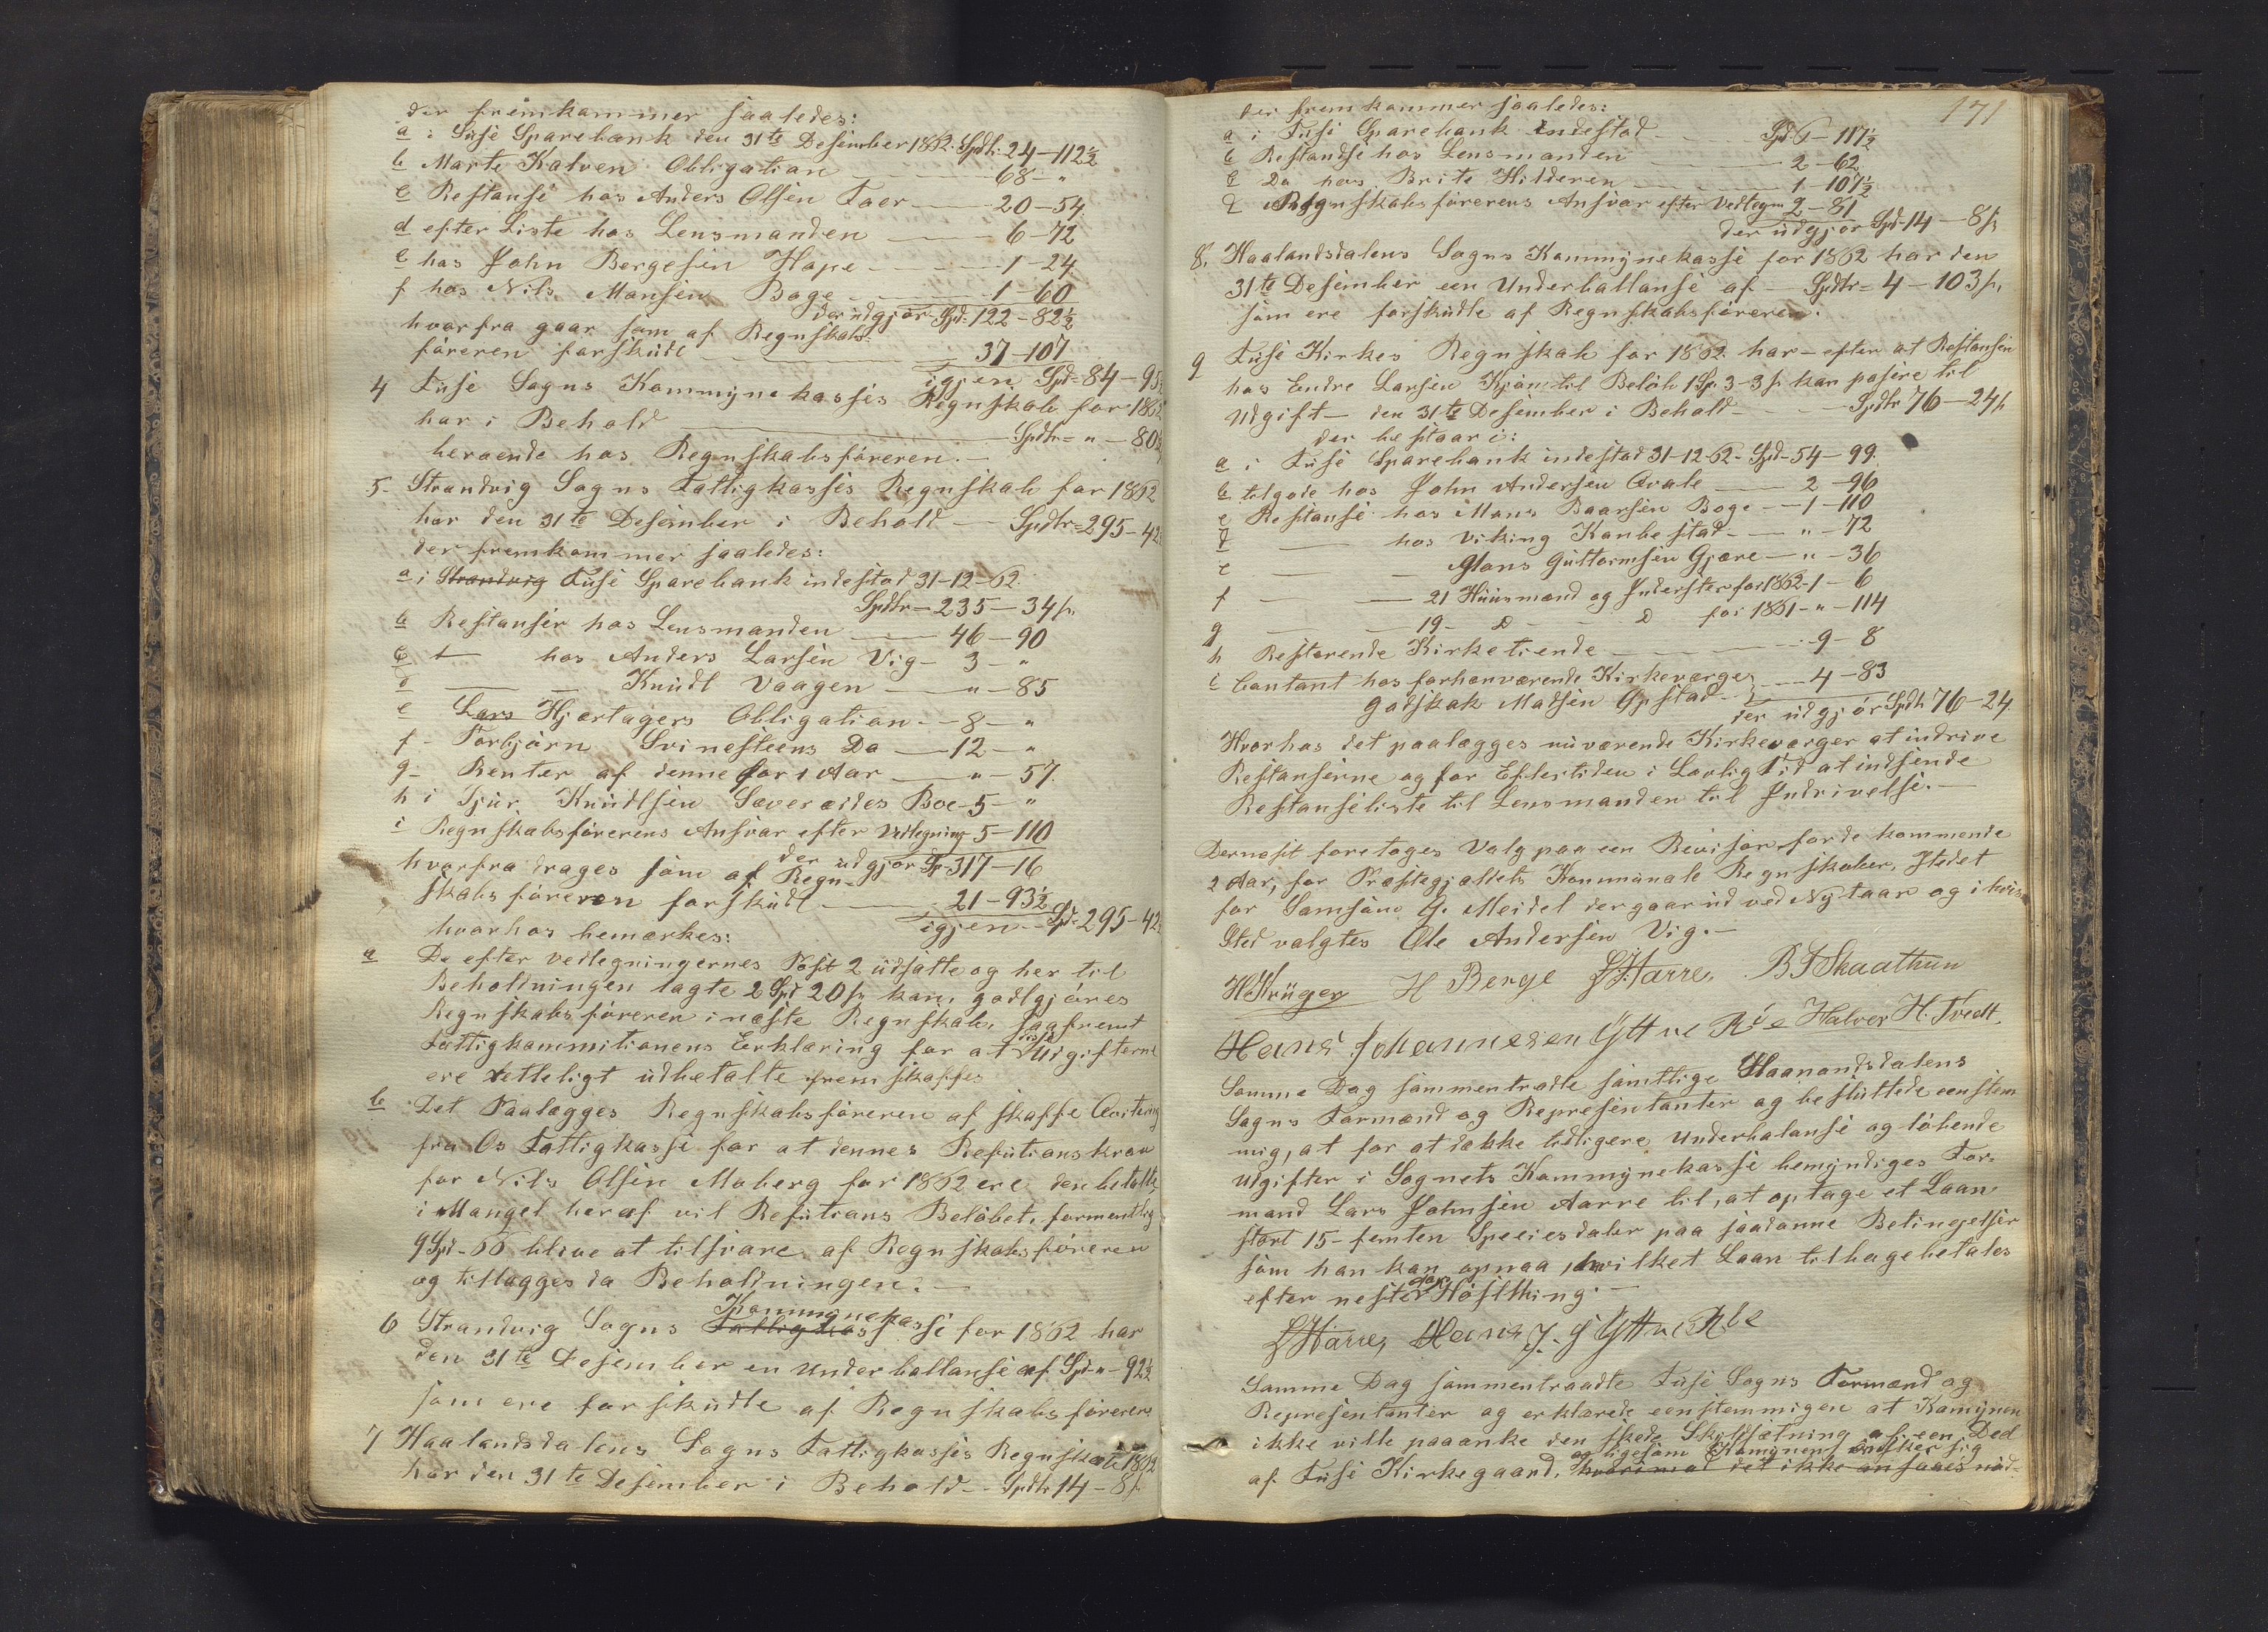 der fremkommer saaledes:
a i Fuse Sparebank den 31te Desember 1862. Spdlr. 24-112½
b Marte Kalven Obligation 68-"
c Restanse hos Anders Olsen Toer 20-54.
d efter Liste hos Lensmanden 6-72
e hos John Bergesen Hope 1-24
f hos Nils Monsen Boge 1-60
der udgjør Spd. 122-82½
hvorfra gaar som af Regnskabs
føreren forskudt 37-107
igjen Spd=84-95½
4 Fuse Sogns Kommynekasses Regnskab for 1862
har i Behold Spdlr= " - 80½
beroende hos Regnskabsføreren.-
5- Strandvig Sogns Fattigkasses Regnskab for 1862
har den 31te Desember i Behold Spdlr=295-42½
der fremkommer saaledes:
a i Strandvig Fuse Sparebank indestod 31-12-62.
Spdlr-235-34s.
b Restanser hos Lensmanden 46-90
c hos Anders Larsen Vig- 3-"
d Knudt Vaagen " - 85
e Lars Hjertagers Obligation - 8-"
f- Torbjørn Svinesteens Do 12-"
g- Renter af denne for 1 Aar " - 57.
h i Sjur Knudtsen Sæveraides Boe-5-"
i Regnskabsførerens Ansvar efter Vedlegning 5-110
der udgjør Sp-317-16
hvorfra drages som af Regn-
skabsføreren forskudt 21-93½
igjen Spd=295-42½
hvorhos bemærkes:
a De efter vedlegningernes Post 2 udsatte og her til
Beholdningen lagte 2 Spd 20s kan godtgjøres
Regnskabsføreren i næste Regnskab, saafremt
Fattigkommitionens Erklæring for at disse Udgifterne
ere retteligt udbetalte fremskaffes
b Det Paalægges Regnskabsføreren af skaffe Qvitering
fra Os Fattigkasse for at dennes Refutionskrav
for Nils Olsen Moberg for 1862 ere den betalte,
i Mangel heraf vil Refutions Beløbet, formentlig
9 Spd-66 blive at tilsvare af Regnskabsføreren
og tillægges da Beholdningen.-
6 Strandvig Sogns Fattigkasse Kommynekasse for 1862 har
den 31te Desember en Underballanse af Spd-"-92½
som ere forskudte af Regnskabsføreren
7 Haalandsdalens Sogns Fattigkasses Regnskab 1862
har den 31te Desember i Behold - Spdlr 14-8s.
171
der fremkommer saaledes:
a i Fuse Sparebank indestod Spd. 6-117½
b Restandse hos Lensmanden 2-62.
c Do hos Brite Hilderen 1-107½
d Regnskabsførerens Ansvar efter Vedlegn 2-81
der udgjør Spd 14-8s
8. Haalandsdalens Sogns Kommynekasse for 1862 har den
31te Desember een Underballanse af Spdlr=4-103s,
som ere forskudte af Regnskabsføreren.
9 Fuse Kirkes Regnskab for 1862 har - efter at Restansen
hos Endre Larsen Kjøn til Beløb 1 Sp. 3-3s kan pasere til
Udgift - den 31te Desember i Behold Spdlr 76-24s
der bestaar i:
a i Fuse Sparebank indestod 31-12-62- Spd-54-99.
b tilgode hos John Andersen Qvale 2-96
c Restanse hos Mons Baarsen Boge 1-110
d hos Viking Kanbestad " - 72
e Mons Guttormsen Gjære - " - 36
f 21 Huusmænd og Inderster for 1862-1-6
g 19- D D for 1861-"-114
h Resterende Kirketiende 9-8
i Contant hos forhenværende Kirkeværger 4-83
Godskalk Madsen Opstad
der udgjør Spdlr 76-24.
Hvorhos det paalægges nuværende Kirkeværger at indrive
Restanserne og for Eftertiden i Lovlig Tid at indsende
Restanseliste til Lensmanden til Indrivelse.-
Dernæst foretages Valg paa een Revisor for de kommende
2 Aar, for Præstegjældets Kommunale Regnskaber, Istedet
for Samson G. Meidel der gaar ud ved Nytaar og i hvis
Sted valgtes Ole Andersen Vig.-
H Krüger H Berge L J Harre, B T Skaathun
Hans Johannesen Ytt ve Rie Halvor H. Tvedt.
Samme Dag sammentradte samtlige Haanandsdalens
Sogns Formænd og Representanter og besluttede eenstem
mig, at for at dække tidligere Underbalanse og løbende
Udgifter i Sognets Kommynekasse bemyndiges For-
mand Lars Johnsen Aarre til, at optage et Laan
stort 15- femten Speciesdaler paa saadanne Betingelser
som han kan opnaa, hvilket Laan tilbagebetales
efter nester Aars Høstthing.-
L J Harre, Hans J. Ytt ve Rie
Samme Dag sammentraadte Fuse Sogns Formænd og
Representanter og erklærede eenstemmigen at Komynen
ikke ville paaanke den skede Skyldsætning af een Deel
af Fuse Kirkegaard, og ligesom Komynen ønsker sig
hvorimod det ikke ansaaes nød-